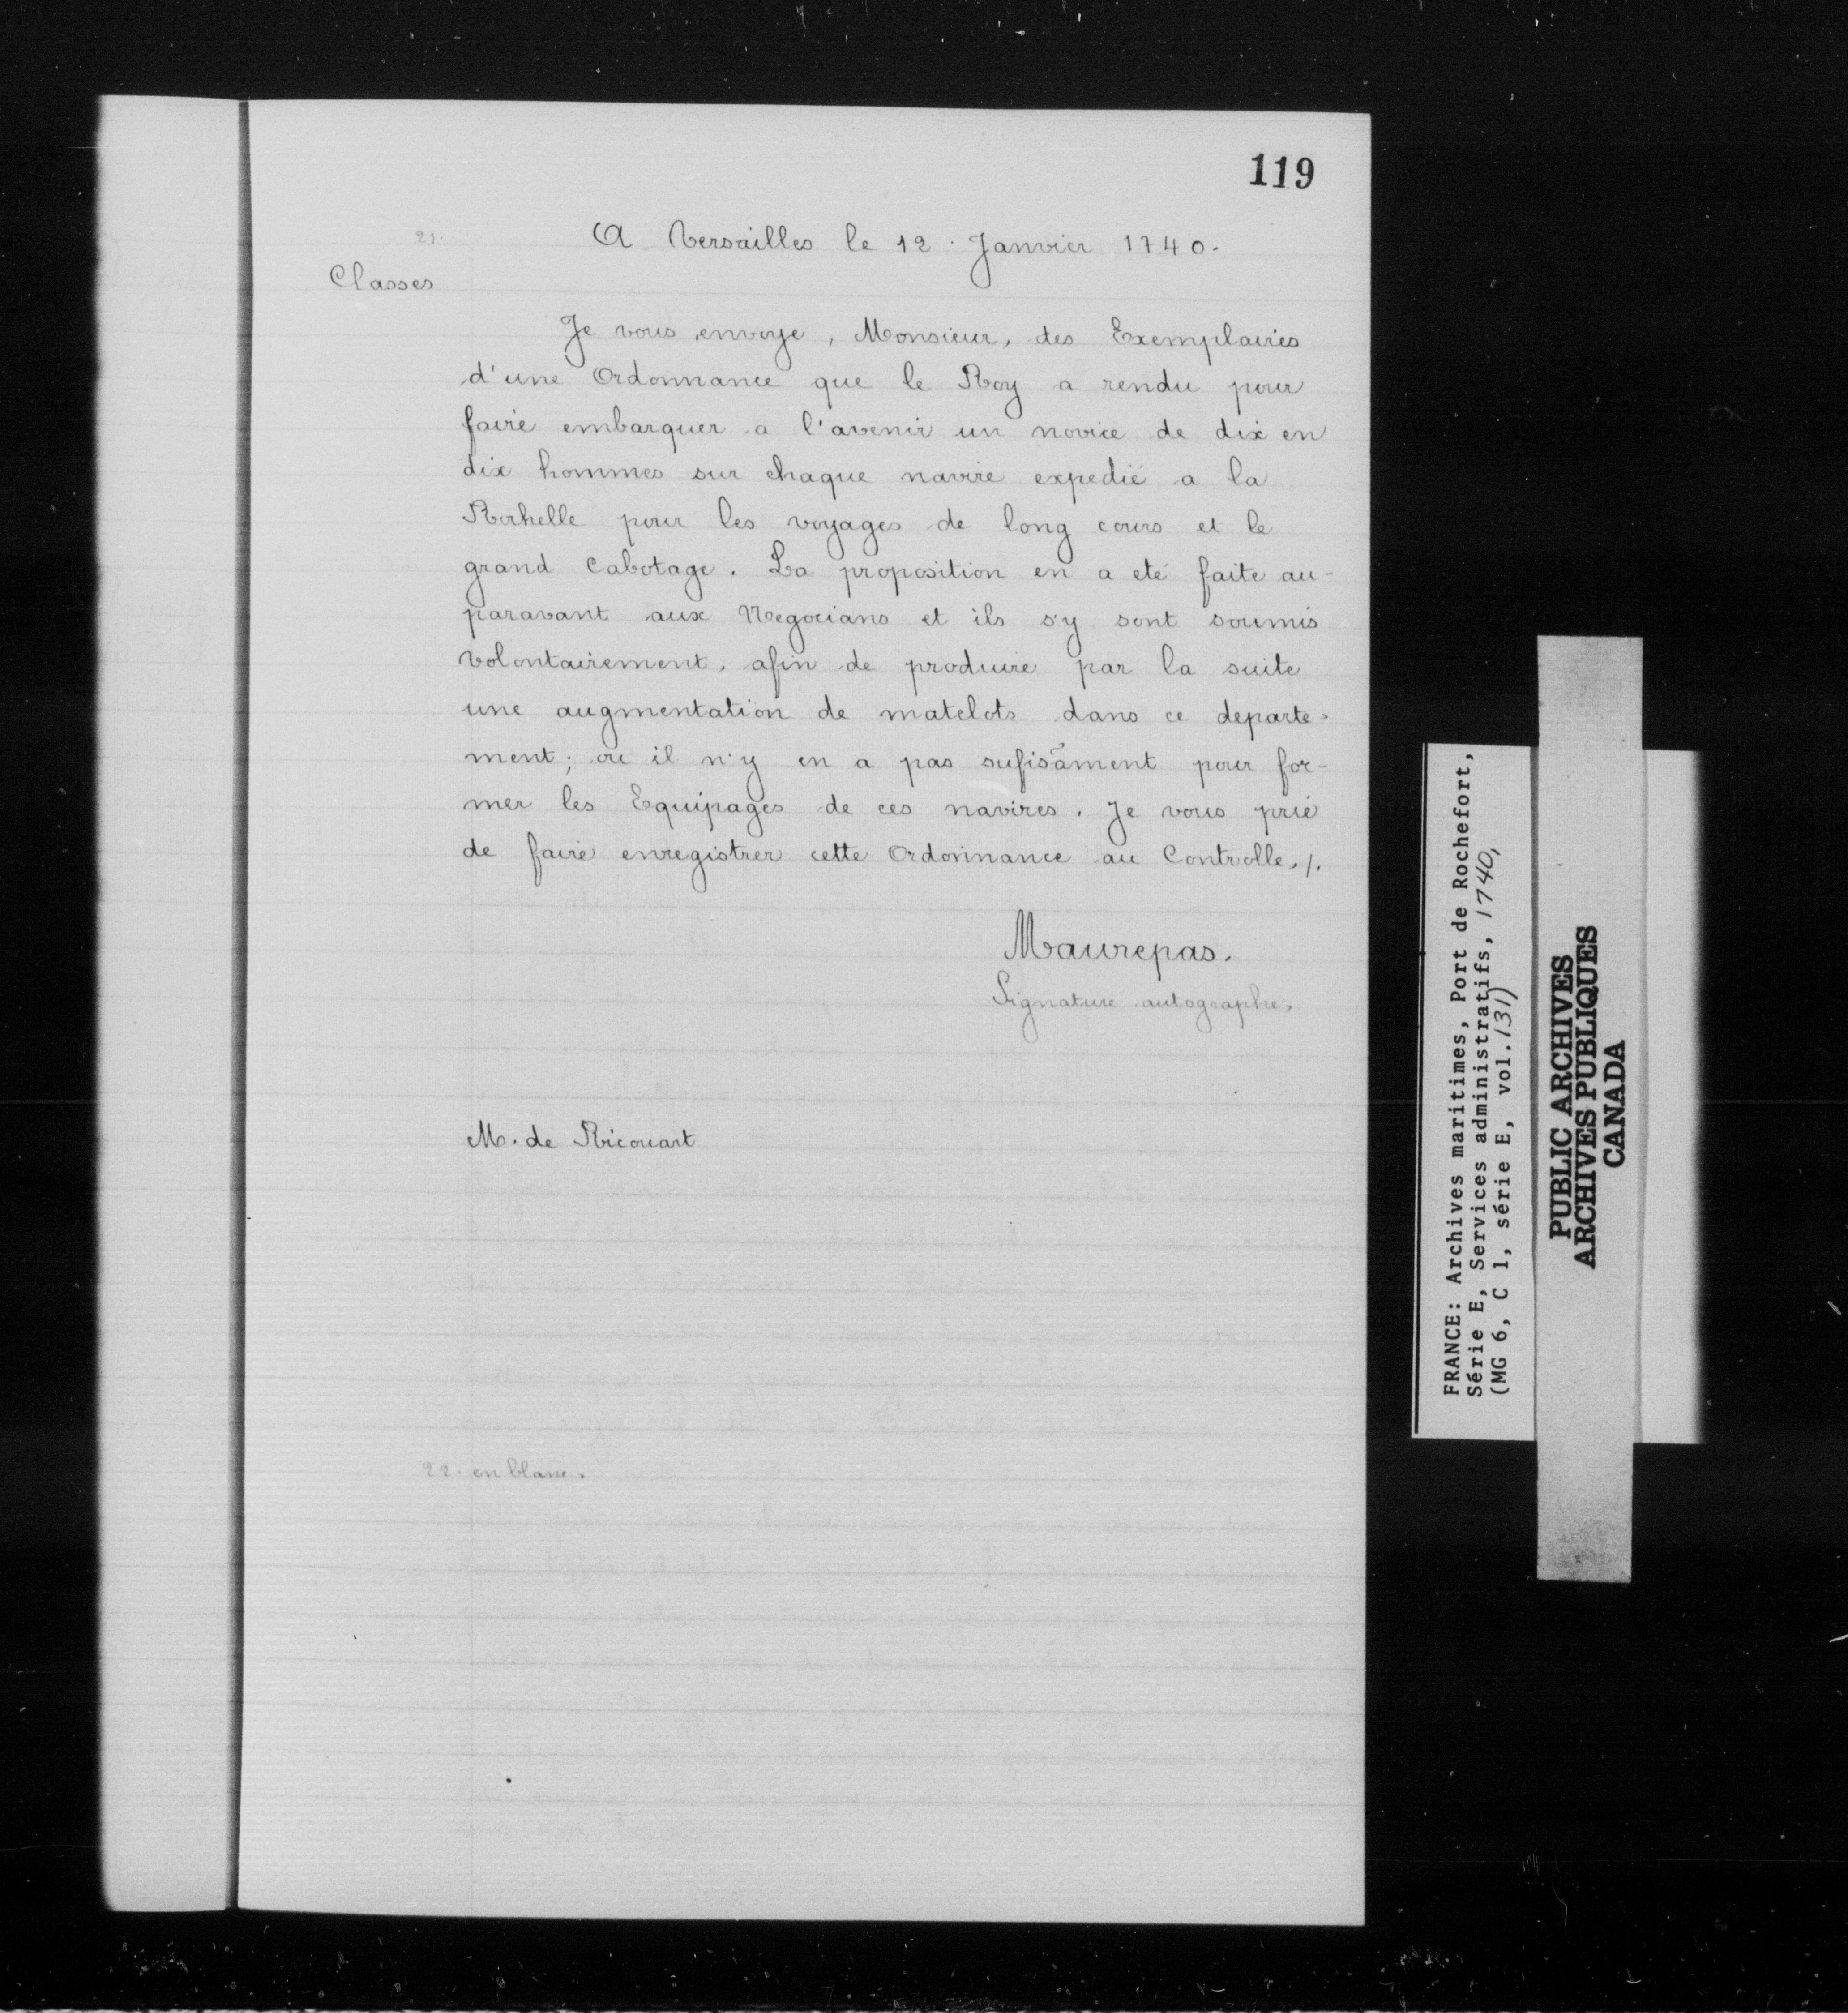 119
21.
A Versailles le 12. Janvier 1740.
Classes
Je vous envoye, Monsieur, des Exemplaires
d'une Ordonnance que le Roy a rendu pour
faire embarquer a l'avenir un novice de dix en
dix hommes sur chaque navire expedié a la
Rochelle pour les voyages de long cours et le
grand Cabotage. La proposition en a eté faite au-
paravant aux Negocians et ils s'y sont soumis
volontairement, afin de produire par la suite
une augmentation de matelots dans ce departe-
ment; ou il n'y en a pas sufisãment pour for-
mer les Equipages de ces navires. Je vous prie
de faire enregistrer cette Ordonnance au Controlle./.
Maurepas.
Signature autographe.
M. de Ricouart
22. en blanc.
FRANCE: Archives maritimes, Port de Rochefort,
Série E, Services administratifs, 1740,
(MG 6, C 1, série E, vol. 131)
PUBLIC ARCHIVES
ARCHIVES PUBLIQUES
CANADA